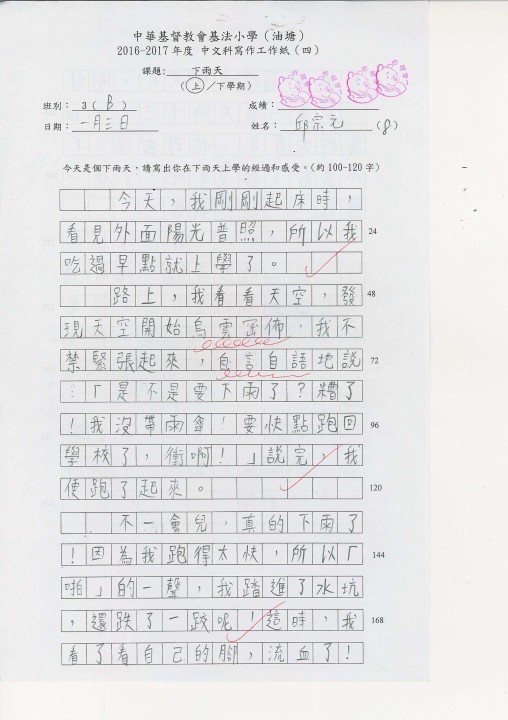 中華基督教會基法小學（油塘）
2016-2017 年度 中文科寫作工作紙（四）
課題： 下雨天
（上／下學期）
班別： 3（B） 成績：
日期： 一月三日 姓名： 邱宗元 （8）
今天是個下雨天，請寫出你在下雨天上學的經過和感受。（約 100-120 字）
今天，我剛剛起床時，
看見外面陽光普照，所以我 24
吃過早點就上學了。
路上，我看看天空，發 48
現天空開始烏雲密佈，我不
禁緊張起來，自言自語地說 72
：「是不是要下雨了？糟了
！我沒帶雨傘！要快點跑回 96
學校了，衝啊！」說完，我
便跑了起來。 120
不一會兒，真的下雨了
！因為我跑得太快，所以「 144
啪」的一聲，我踏進了水坑
，還跌了一跤呢！這時，我 168
看了看自己的腳，流血了！